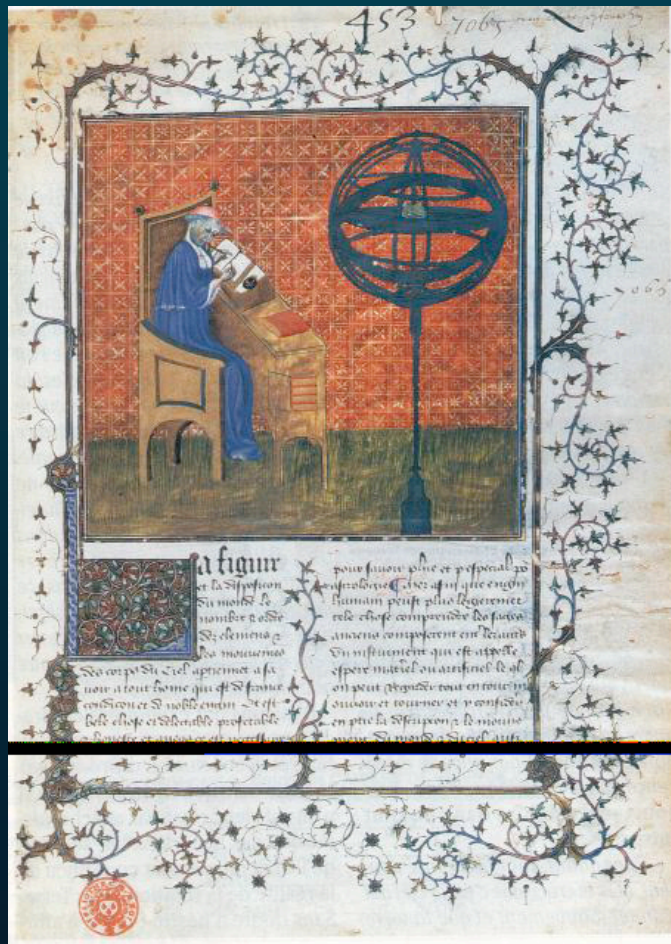 453 7065
7065
a figure
et la disposicion
du monde le
nombre & ordre
des elemens &
les mouvemens
des corps du ciel a sa
voir a tout home qui est de france
condicion et de noble engin Et est
bele chose et delectable profitable
& honeste et ce est necessaire
pour savoir phie et p especial po
astrologie Cher afin que engin
humain peust plus legierement
tele chose comprendre les sages
anciens composerent
un instrument qui est appelle
espere materiel ou artificiel le ql
on peut regarder tout entour m
ouvoir et tourner et y consider
en ptie la & le mouve
ment du monde & du ciel